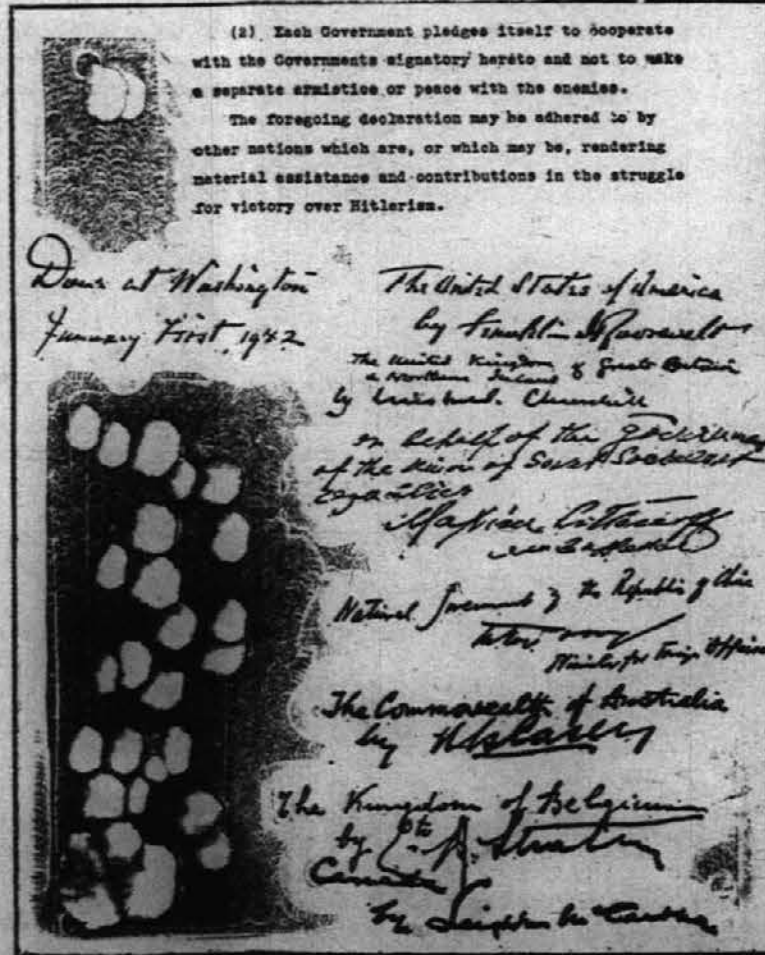 (2) Each Government pledges itself to cooperate
with the Governments signatory hereto and not to make
a separate armistice or peace with the enemies.
The foregoing declaration may be adhered to by
other nations which are, or which may be, rendering
material assistance and contributions in the struggle
for victory over Hitlerism.
Done at Washington
January First, 1942
The United States of America
by Franklin D Roosevelt
The United Kingdom of Great Britain
& Northern Ireland
by Winston S. Churchill
on behalf of the Government
of the Union of Soviet Socialist
Republics
Maxim Litvinoff
National Government of the Republic of China
Minister for Foreign Affairs
The Commonwealth of Australia
by R G Casey
The Kingdom of Belgium
by Cte R. Straten
Canada
by Leighton McCarthy